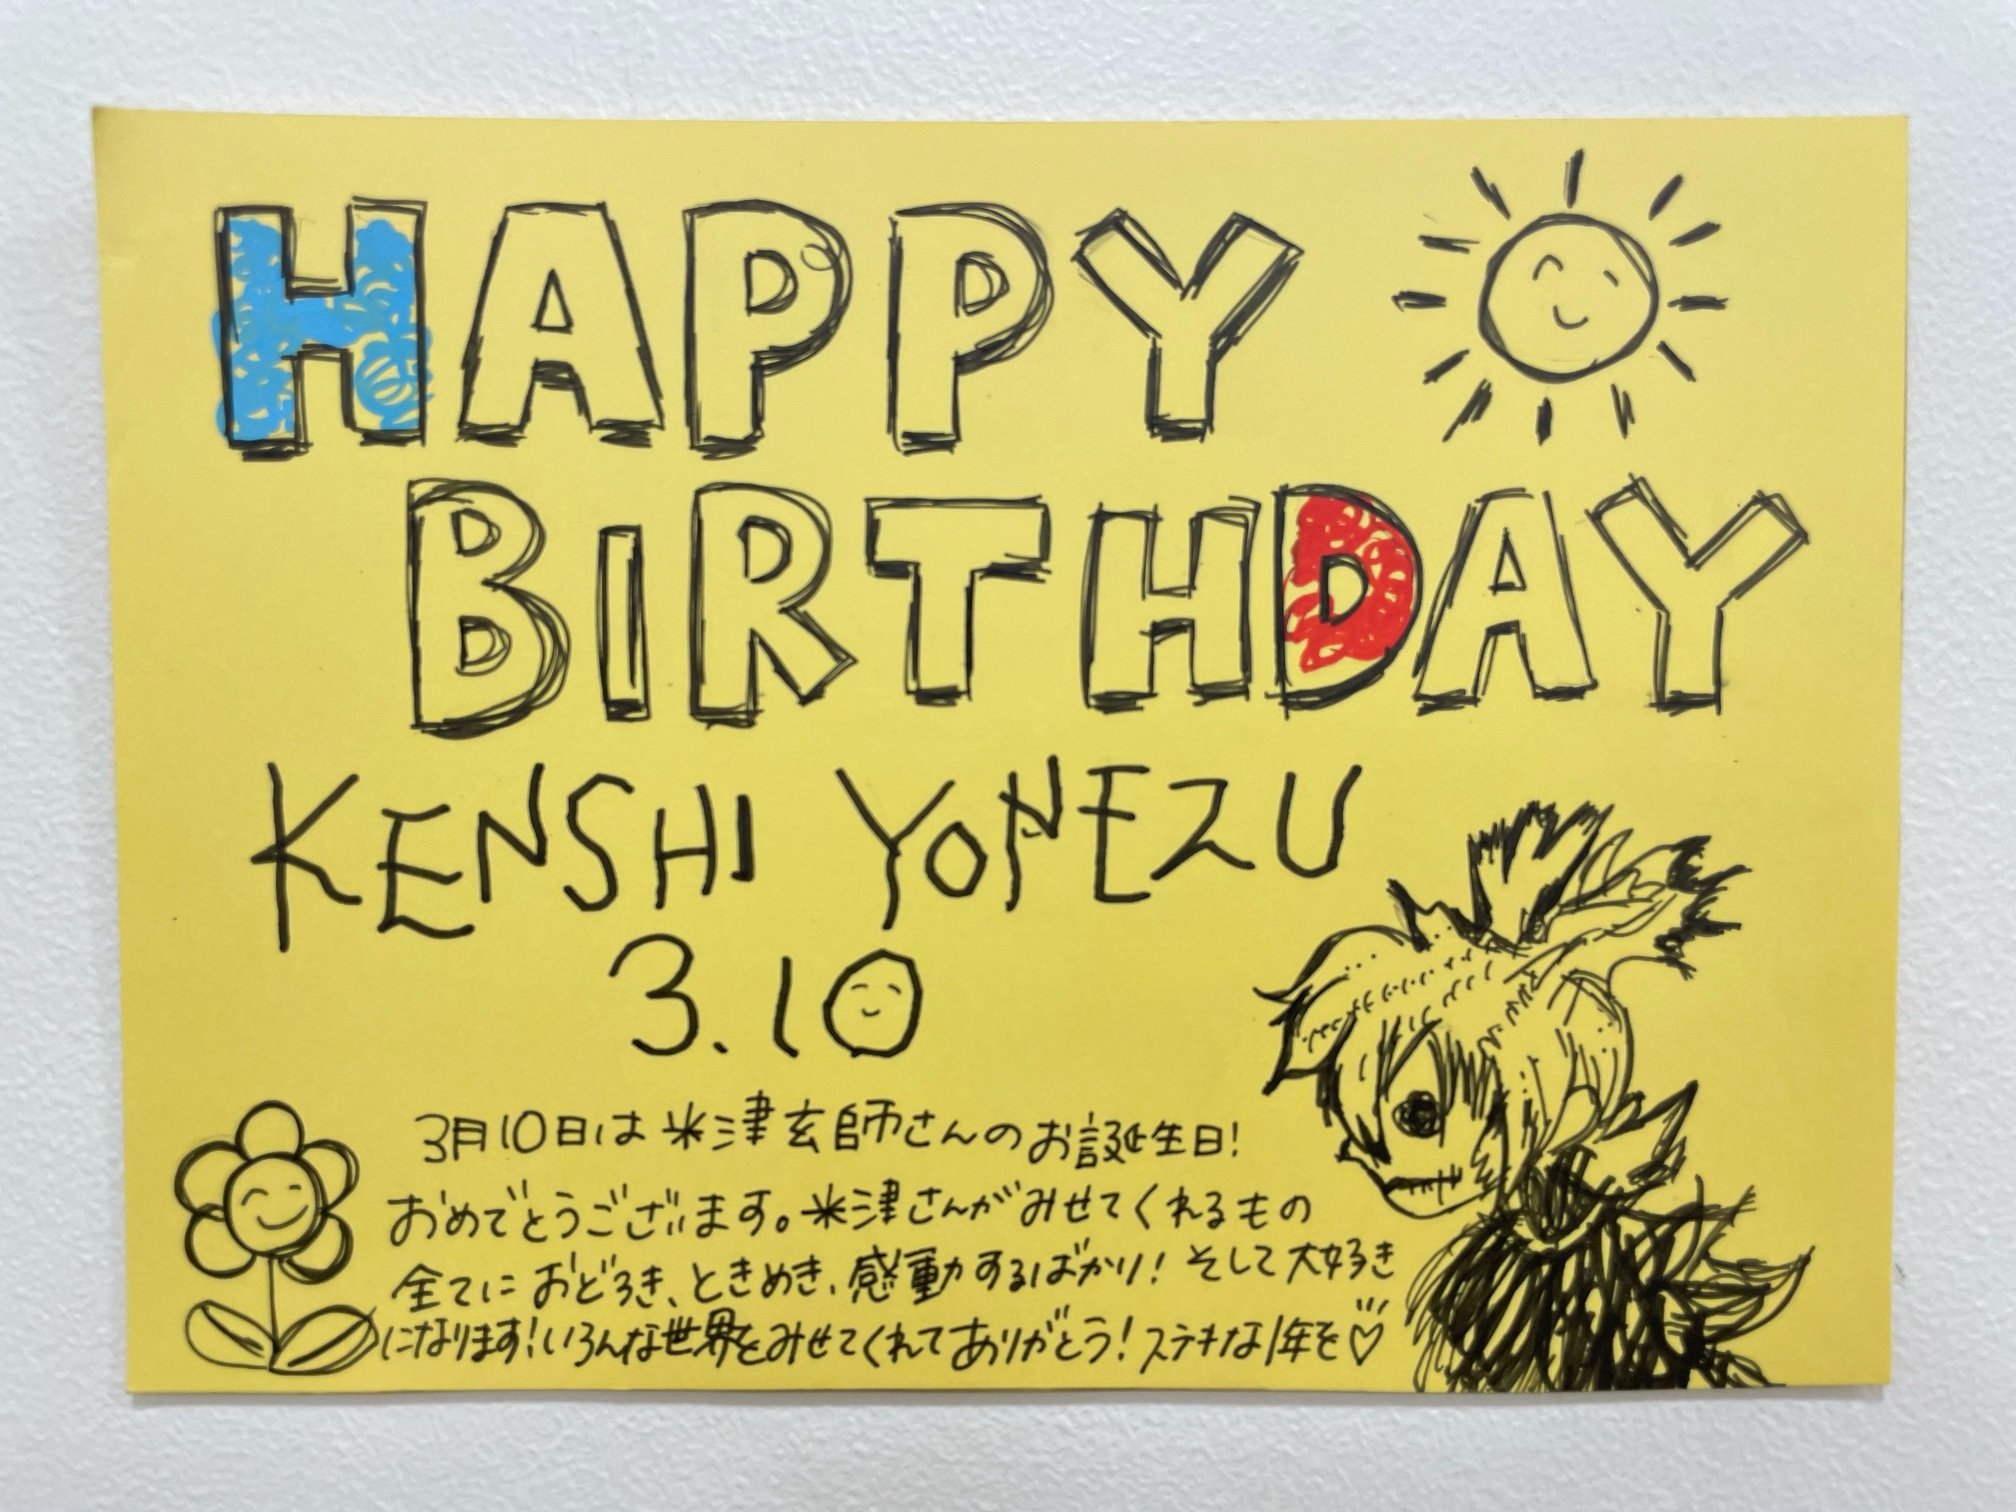 HAPPY
BIRTHDAY
KENSHI YONEZU
3.10
3月10日は米津玄師さんのお誕生日!
おめでとうございます。米津さんがみせてくれるもの
全てにおどろき、ときめき、感動するばかり!そして大好き
になります!いろんな世界をみせてくれてありがとう!ステキな1年を♡